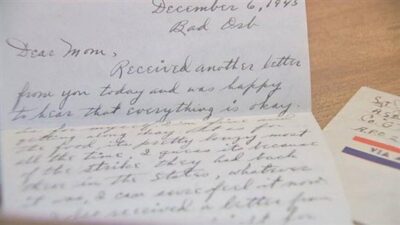 December 6, 1945
Bad Orb
Dear Mom,
Received another letter
from you today and was happy
to hear that everything is okay.
As for me,
getting along okay. As for
the food, its pretty lousy most
all the time. I guess its because
of the strike they had back
there in the States, whatever
it was, I can sure feel it now.
I also received a letter from
Sgt
VIA A